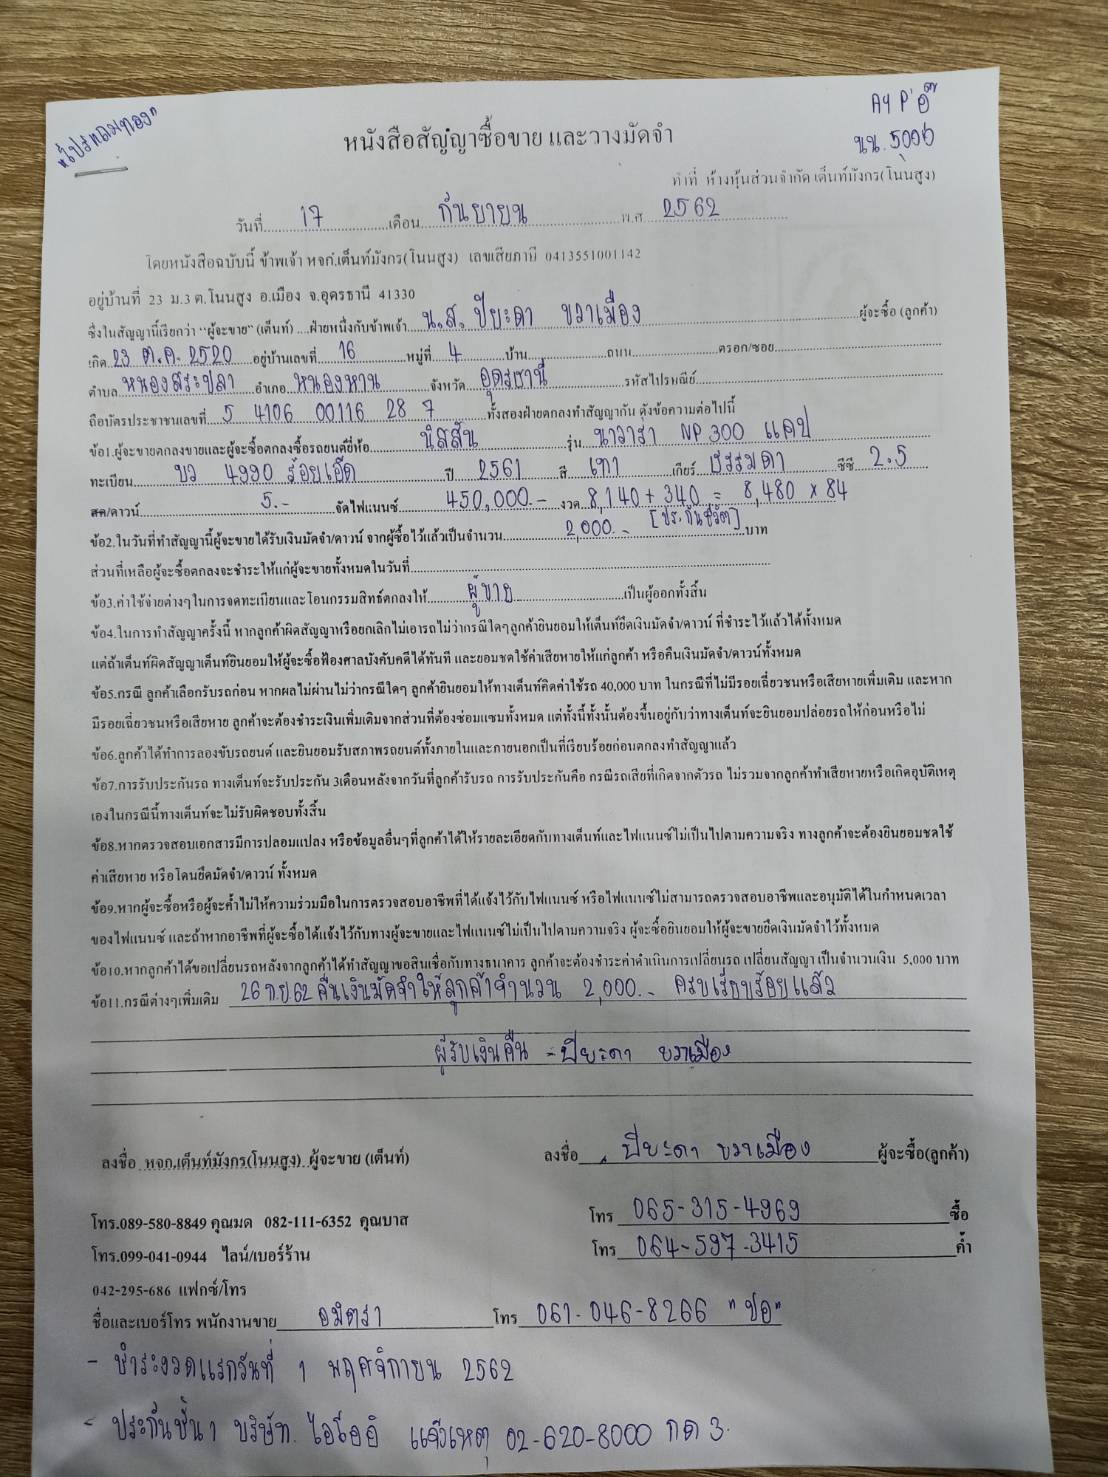 "โปรแถมทอง"
AY P'อี๊
นน. 5006
หนังสือสัญญาซื้อขาย และวางมัดจำ
ทำที่ ห้างหุ้นส่วนจำกัด เต็นท์มังกร(โนนสูง)
วันที่ 17 เดือน กันยายน พ.ศ 2562
โดยหนังสือฉบับนี้ ข้าพเจ้า หจก.เต็นท์มังกร(โนนสูง) เลขเสียภาษี 0413551001142
อยู่บ้านที่ 23 ม.3 ต.โนนสูง อ.เมือง จ.อุดรธานี 41330
ซึ่งในสัญญานี้เรียกว่า "ผู้จะขาย" (เต็นท์) ...ฝ่ายหนึ่งกับข้าพเจ้า น.ส. ปิยะดา ขวาเมือง ผู้จะซื้อ (ลูกค้า)
เกิด 23 ต.ค. 2520 อยู่บ้านเลขที่ 16 หมู่ที่ 4 บ้าน ถนน ตรอก/ซอย
ตำบล หนองสระปลา อำเภอ หนองหาน จังหวัด อุดรธานี รหัสไปรษณีย์
ถือบัตรประชาชนเลขที่ 5 4106 00116 28 7 ทั้งสองฝ่ายตกลงทำสัญญากัน ดังข้อความต่อไปนี้
ข้อ1.ผู้จะขายตกลงขายและผู้จะซื้อตกลงซื้อรถยนต์ยี่ห้อ นิสสัน รุ่น นาวาร่า NP 300 แคป
ทะเบียน บว 4990 ร้อยเอ็ด ปี 2561 สี เทา เกียร์ ธรรมดา ซีซี 2.5
สด/ดาวน์ 5.- จัดไฟแนนซ์ 450,000.- งวด 8,140 + 340 = 8,480 x 84
[ประกันชีวิต]
ข้อ2.ในวันที่ทำสัญญานี้ผู้จะขายได้รับเงินมัดจำ/ดาวน์ จากผู้ซื้อไว้แล้วเป็นจำนวน 2,000.- บาท
ส่วนที่เหลือผู้จะซื้อตกลงจะชำระให้แก่ผู้จะขายทั้งหมดในวันที่
ข้อ3.ค่าใช้จ่ายต่างๆในการจดทะเบียนและโอนกรรมสิทธ์ตกลงให้ ผู้ขาย เป็นผู้ออกทั้งสิ้น
ข้อ4.ในการทำสัญญาครั้งนี้ หากลูกค้าผิดสัญญาหรือยกเลิกไม่เอารถไม่ว่ากรณีใดๆลูกค้ายินยอมให้เต็นท์ยึดเงินมัดจำ/ดาวน์ ที่ชำระไว้แล้วได้ทั้งหมด
แต่ถ้าเต็นท์ผิดสัญญาเต็นท์ยินยอมให้ผู้จะซื้อฟ้องศาลบังคับคดีได้ทันที และยอมชดใช้ค่าเสียหายให้แก่ลูกค้า หรือคืนเงินมัดจำ/ดาวน์ทั้งหมด
ข้อ5.กรณี ลูกค้าเลือกรับรถก่อน หากผลไม่ผ่านไม่ว่ากรณีใดๆ ลูกค้ายินยอมให้ทางเต็นท์คิดค่าใช้รถ 40,000 บาท ในกรณีที่ไม่มีรอยเฉี่ยวชนหรือเสียหายเพิ่มเติม และหาก
มีรอยเฉี่ยวชนหรือเสียหาย ลูกค้าจะต้องชำระเงินเพิ่มเติมจากส่วนที่ต้องซ่อมแซมทั้งหมด แต่ทั้งนี้ทั้งนั้นต้องขึ้นอยู่กับว่าทางเต็นท์จะยินยอมปล่อยรถให้ก่อนหรือไม่
ข้อ6.ลูกค้าได้ทำการลองขับรถยนต์ และยินยอมรับสภาพรถยนต์ทั้งภายในและภายนอกเป็นที่เรียบร้อยก่อนตกลงทำสัญญาแล้ว
ข้อ7.การรับประกันรถ ทางเต็นท์จะรับประกัน 3เดือนหลังจากวันที่ลูกค้ารับรถ การรับประกันคือ กรณีรถเสียที่เกิดจากตัวรถ ไม่รวมจากลูกค้าทำเสียหายหรือเกิดอุบัติเหตุ
เองในกรณีนี้ทางเต็นท์จะไม่รับผิดชอบทั้งสิ้น
ข้อ8.หากตรวจสอบเอกสารมีการปลอมแปลง หรือข้อมูลอื่นๆที่ลูกค้าได้ให้รายละเอียดกับทางเต็นท์และไฟแนนซ์ไม่เป็นไปตามความจริง ทางลูกค้าจะต้องยินยอมชดใช้
ค่าเสียหาย หรือโดนยึดมัดจำ/ดาวน์ ทั้งหมด
ข้อ9.หากผู้จะซื้อหรือผู้จะค้ำไม่ให้ความร่วมมือในการตรวจสอบอาชีพที่ได้แจ้งไว้กับไฟแนนซ์ หรือไฟแนนซ์ไม่สามารถตรวจสอบอาชีพและอนุมัติได้ในกำหนดเวลา
ของไฟแนนซ์ และถ้าหากอาชีพที่ผู้จะซื้อได้แจ้งไว้กับทางผู้จะขายและไฟแนนซ์ไม่เป็นไปตามความจริง ผู้จะซื้อยินยอมให้ผู้จะขายยึดเงินมัดจำไว้ทั้งหมด
ข้อ10.หากลูกค้าได้ขอเปลี่ยนรถหลังจากลูกค้าได้ทำสัญญาขอสินเชื่อกับทางธนาคาร ลูกค้าจะต้องชำระค่าดำเนินการเปลี่ยนรถ เปลี่ยนสัญญา เป็นจำนวนเงิน 5,000 บาท
ข้อ11.กรณีต่างๆเพิ่มเติม 26 ก.ย. 62 คืนเงินมัดจำให้ลูกค้าจำนวน 2,000.- ครบเรียบร้อยแล้ว
ผู้รับเงินคืน - ปิยะดา ขวาเมือง
ลงชื่อ หจก.เต็นท์มังกร(โนนสูง) ผู้จะขาย (เต็นท์) ลงชื่อ ปิยะดา ขวาเมือง ผู้จะซื้อ(ลูกค้า)
โทร.089-580-8849 คุณมด 082-111-6352 คุณบาส โทร 065-315-4969 ซื้อ
โทร.099-041-0944 ไลน์/เบอร์ร้าน โทร 064-597-3415 ค้ำ
042-295-686 แฟกซ์/โทร
ชื่อและเบอร์โทร พนักงานขาย อมิตรา โทร 061-046-8266 "ปอ"
- ชำระงวดแรกวันที่ 1 พฤศจิกายน 2562
- ประกันชั้น 1 บริษัท ไอโออิ แจ้งเหตุ 02-620-8000 กด 3.